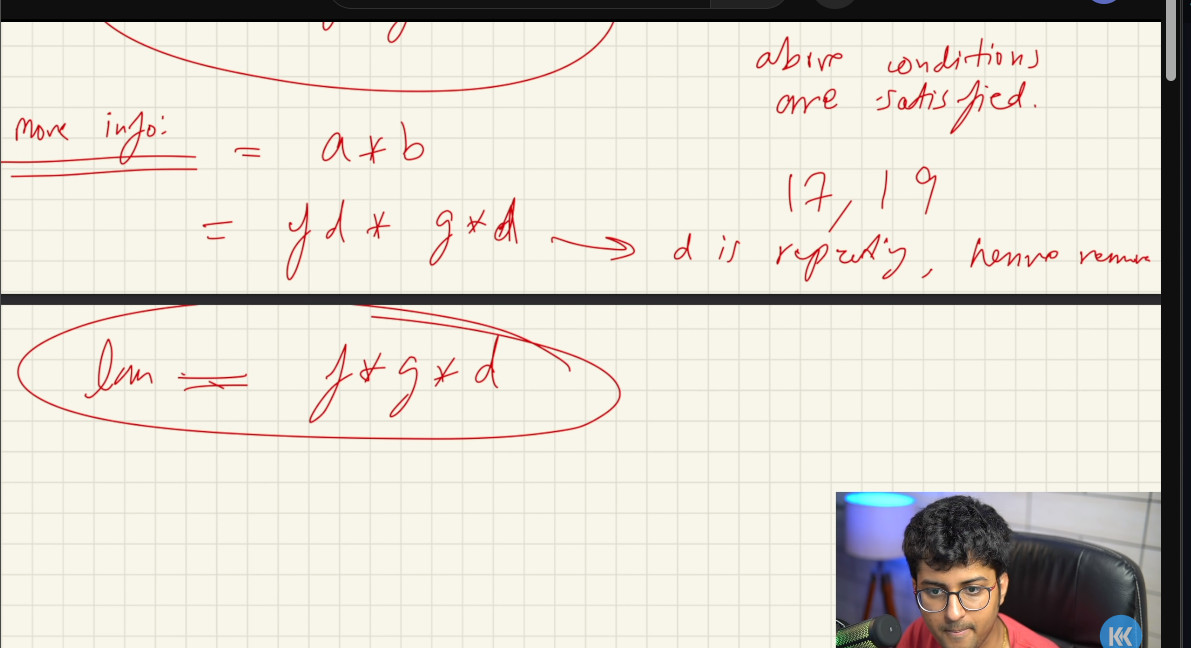 above conditions
are satisfied.
More info:
= a * b
17, 19
= f d * g * d → d is repeating, hence remove
lcm = f * g * d
KK